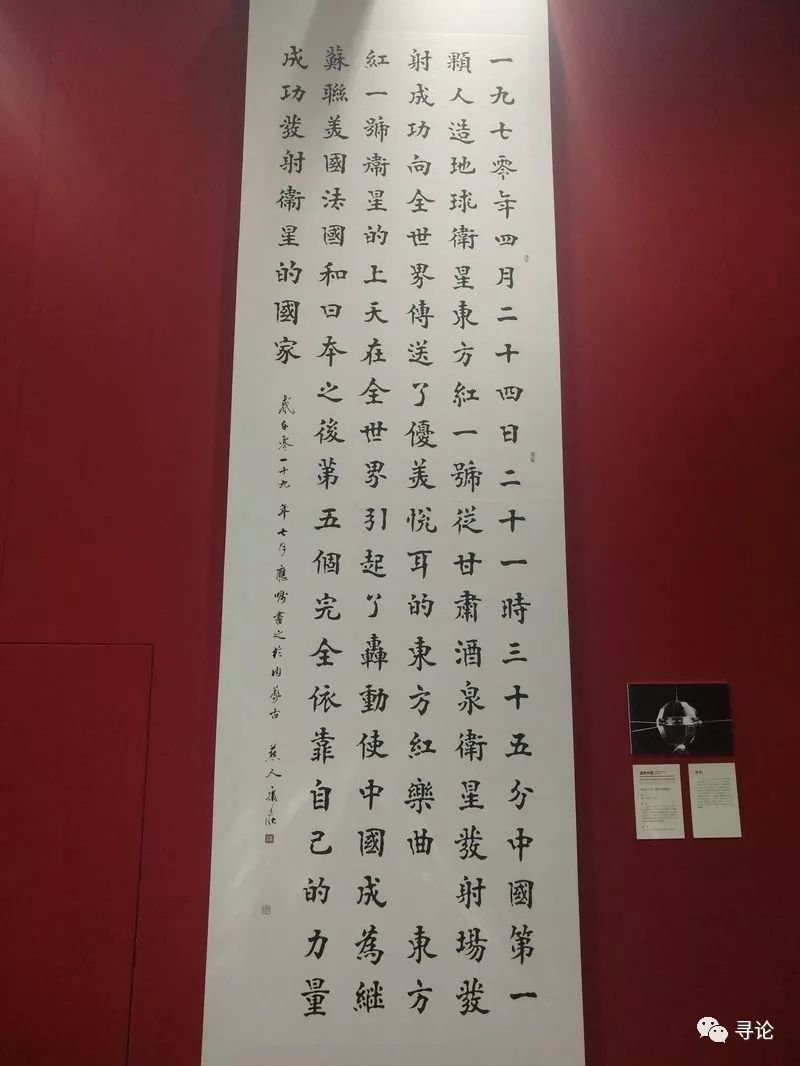 一九七零年四月二十四日二十一時三十五分中國第一
顆人造地球衛星東方紅一號從甘肅酒泉衛星發射場發
射成功向全世界傳送了優美悅耳的東方紅樂曲 東方
紅一號衛星的上天在全世界引起了轟動使中國成為繼
蘇聯美國法國和日本之後第五個完全依靠自己的力量
成功發射衛星的國家
零一十九 年七月應囑書之於內蒙古 燕人
寻论